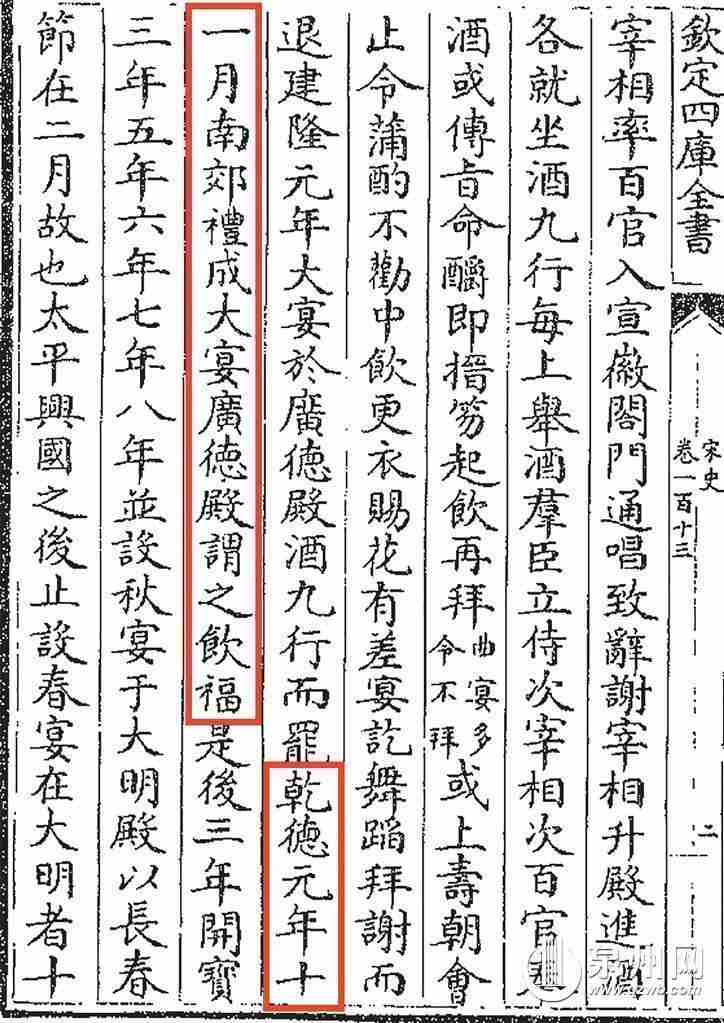 欽定四庫全書
宋史
卷一百十三
二
宰相率百官入宣徽閤門通唱致辭謝宰相升殿進酒
各就坐酒九行每上舉酒羣臣立侍次宰相次百官
酒或傳旨命釂即搢笏起飲再拜曲宴多令不拜或上壽朝會
止令蒲酌不勸中飲更衣賜花有差宴訖舞蹈拜謝而
退建隆元年大宴於廣德殿酒九行而罷乾德元年十
一月南郊禮成大宴廣德殿謂之飲福是後三年開寶
三年五年六年七年八年並設秋宴于大明殿以長春
節在二月故也太平興國之後止設春宴在大明者十
泉州网
www.qzwb.com